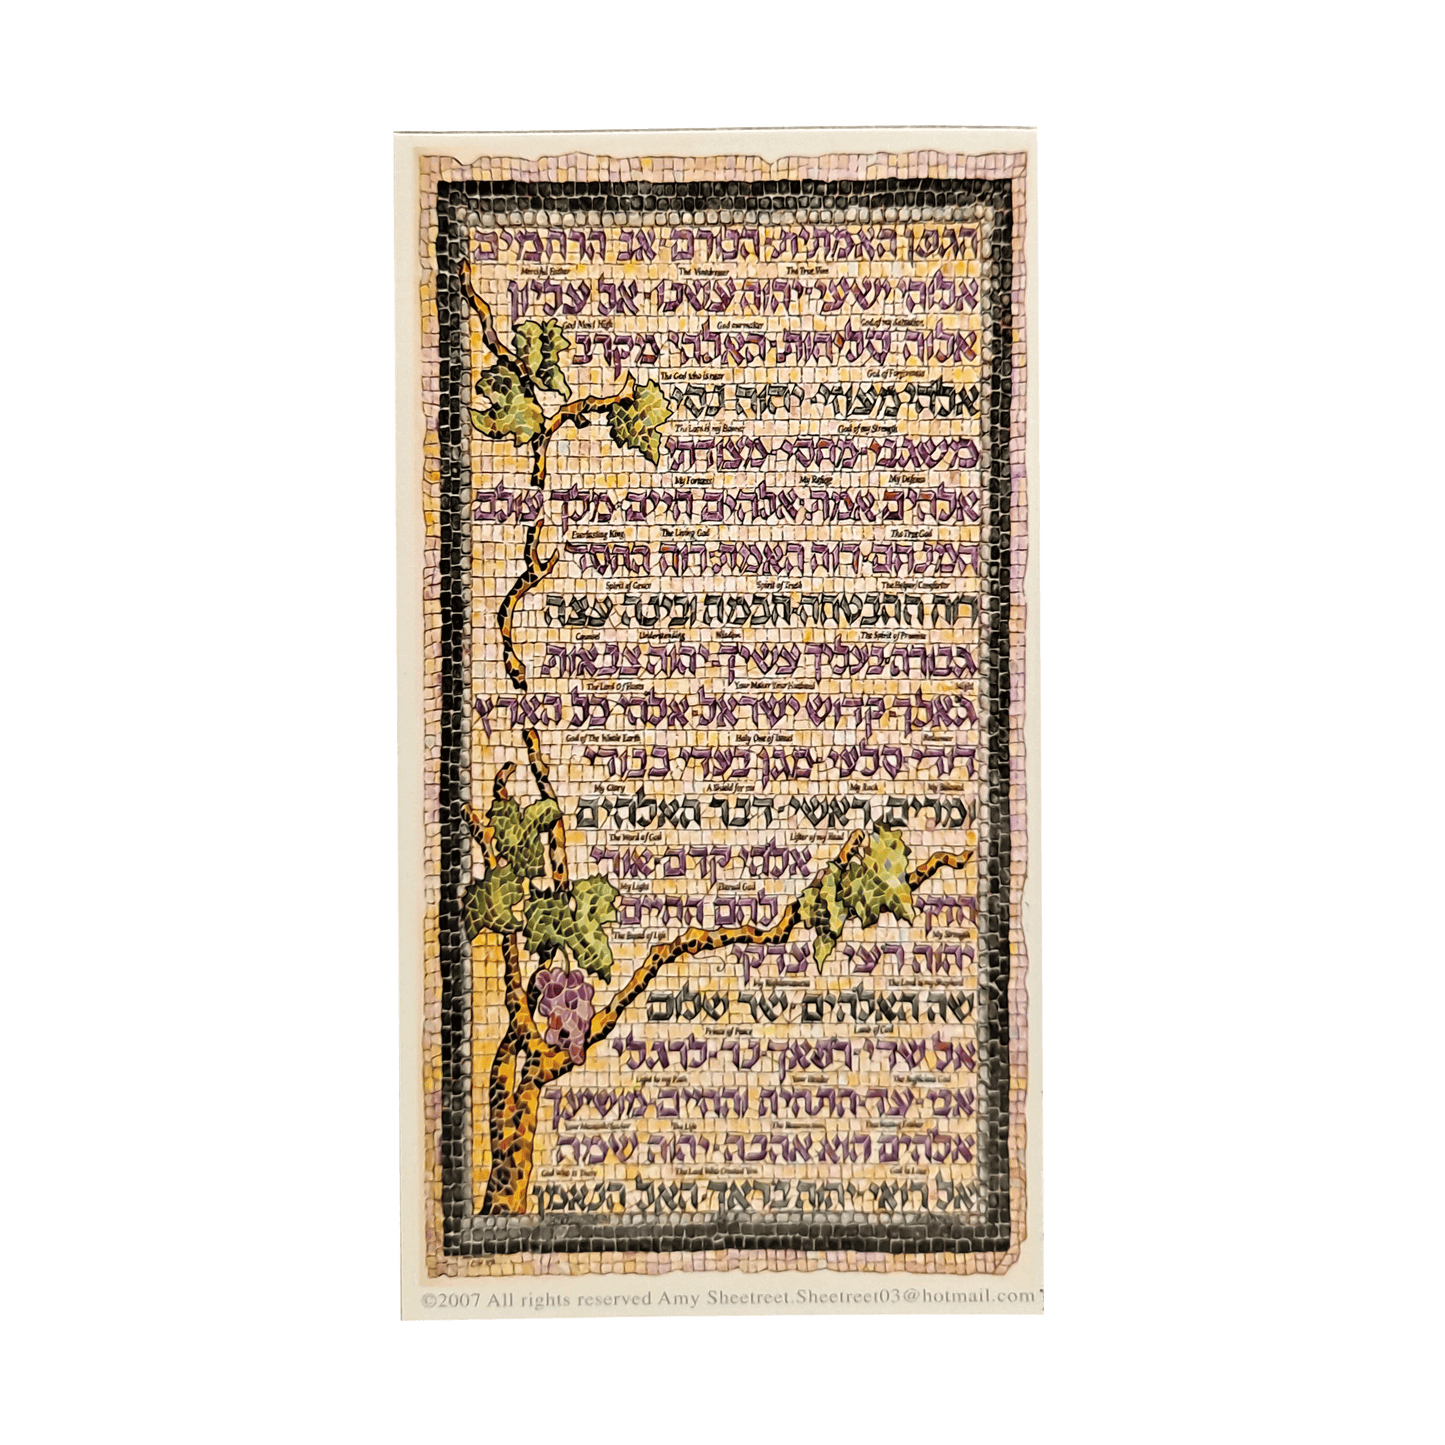 הגפן האמתית·הכורם·אב הרחמים
Merciful Father The Vinedresser The True Vine
אלוהי ישעי·יהוה עשנו·אל עליון
God Most High God our maker God of my Salvation
אלוה סליחות·האלהי מקרב
The God who is near God of Forgiveness
אלהי מעוזי·יהוה נסי
The Lord is my Banner God of my Strength
משגבי·מחסי·מצודתי
My Fortress My Refuge My Defense
אלהים אמת·אלהים חיים·מלך עולם
Everlasting King The Living God The True God
המנחם·רוח האמת·רוח החסד
Spirit of Grace Spirit of Truth The Helper/Comforter
רוח ההבטחה·חכמה ובינה·עצה
Counsel Understanding Wisdom The Spirit of Promise
גבורה·בעליך עשיך·יהוה צבאות
The Lord Of Hosts Your Maker Your Husband Might
גאלך·קדוש ישראל·אלהי כל הארץ
God of The Whole Earth Holy One of Israel Redeemer
דודי·סלעי·מגן בעדי·כבודי
My Glory A Shield for me My Rock My Beloved
ומרים ראשי·דבר האלהים
The Word of God Lifter of my Head
אלהי קדם·אורי
My Light Eternal God
חזקי לחם החיים
The Bread of Life My Strength
יהוה רעי צדקי
My Righteousness The Lord is my Shepherd
שה האלהים·שר שלום
Prince of Peace Lamb of God
אל שדי·רפאך·נר לרגלי
Light to my Path Your Healer The Sufficient God
אבי עד·התחיה והחיים·מושיעך
The Life The Resurrection Everlasting Father
אלהים הוא אהבה·יהוה שמה
God who is There The Lord Who Created You God is Love
אל רואי·יהוה בראך·האל הנאמן
©2007 All rights reserved Amy Sheetreet.Sheetreet03@hotmail.com